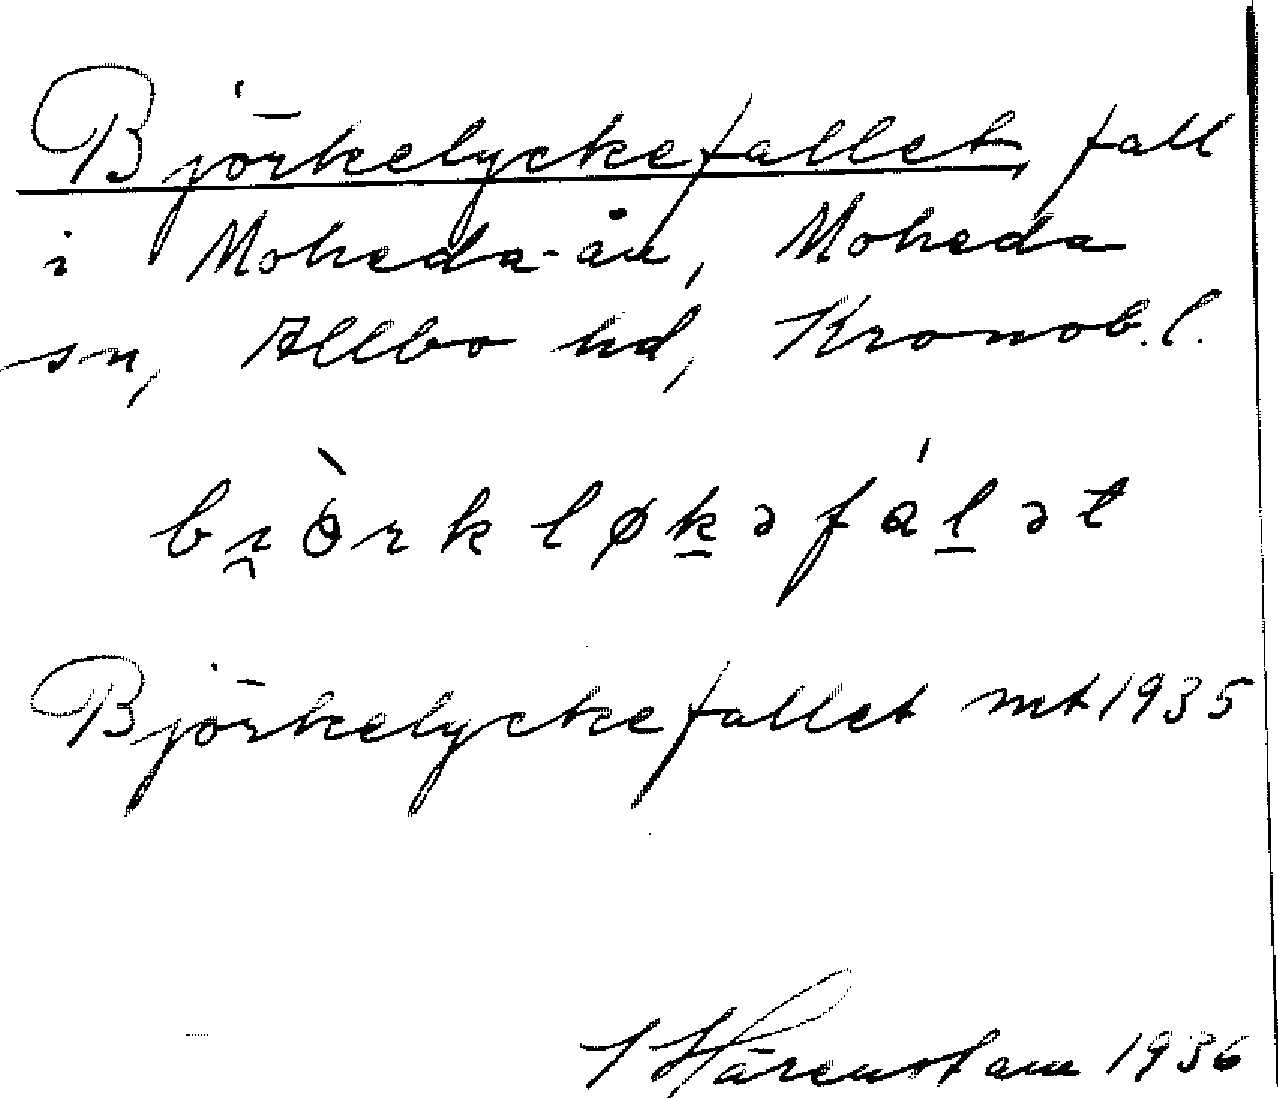 Björkelyckefallet, fall
i Moheda-ån, Moheda
sn, Allbo hd, Kronob. l.
bi̯ò̀rkløk̲əfál̲ət
Björkelyckefallet mt 1935
Härenstam 1936